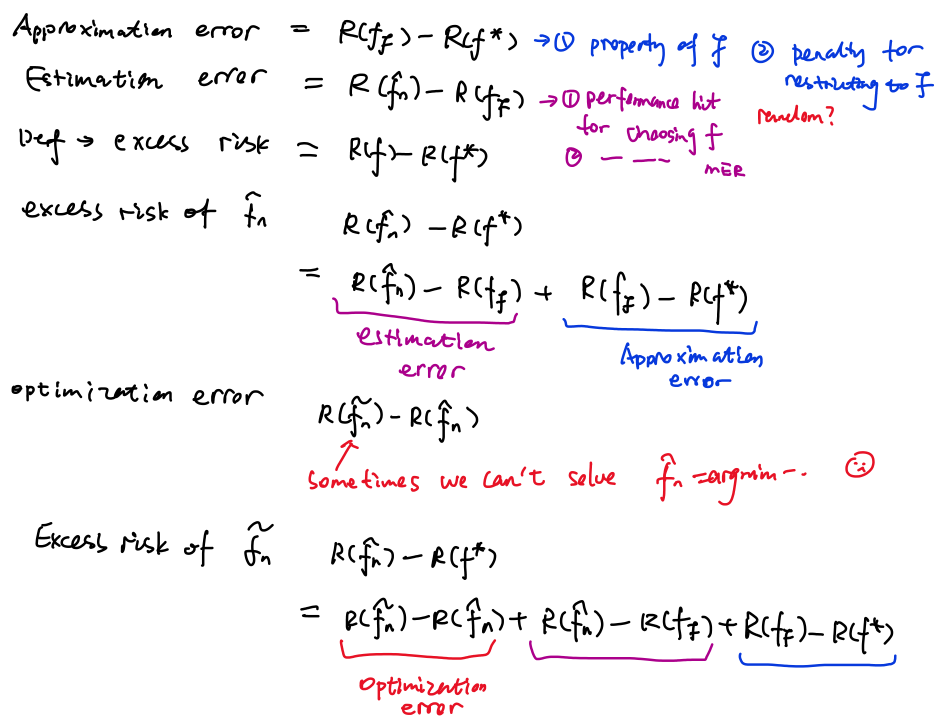 Approximation error = R(f_F) − R(f*) → ① property of F ② penalty for
restricting to F
Estimation error = R(f̂_n) − R(f_F) → ① performance hit random?
for choosing f
Def → excess risk = R(f) − R(f*) ② — ——
excess risk of f̂_n R(f̂_n) − R(f*)
= R(f̂_n) − R(f_F) + R(f_F) − R(f*)
estimation Approximation
error error
optimization error R(f̃_n) − R(f̂_n)
sometimes we can't solve f̂_n = argmin -- ☹
Excess risk of f̃_n R(f̂_n) − R(f*)
= R(f̃_n) − R(f̂_n) + R(f̂_n) − R(f_F) + R(f_F) − R(f*)
Optimization
error